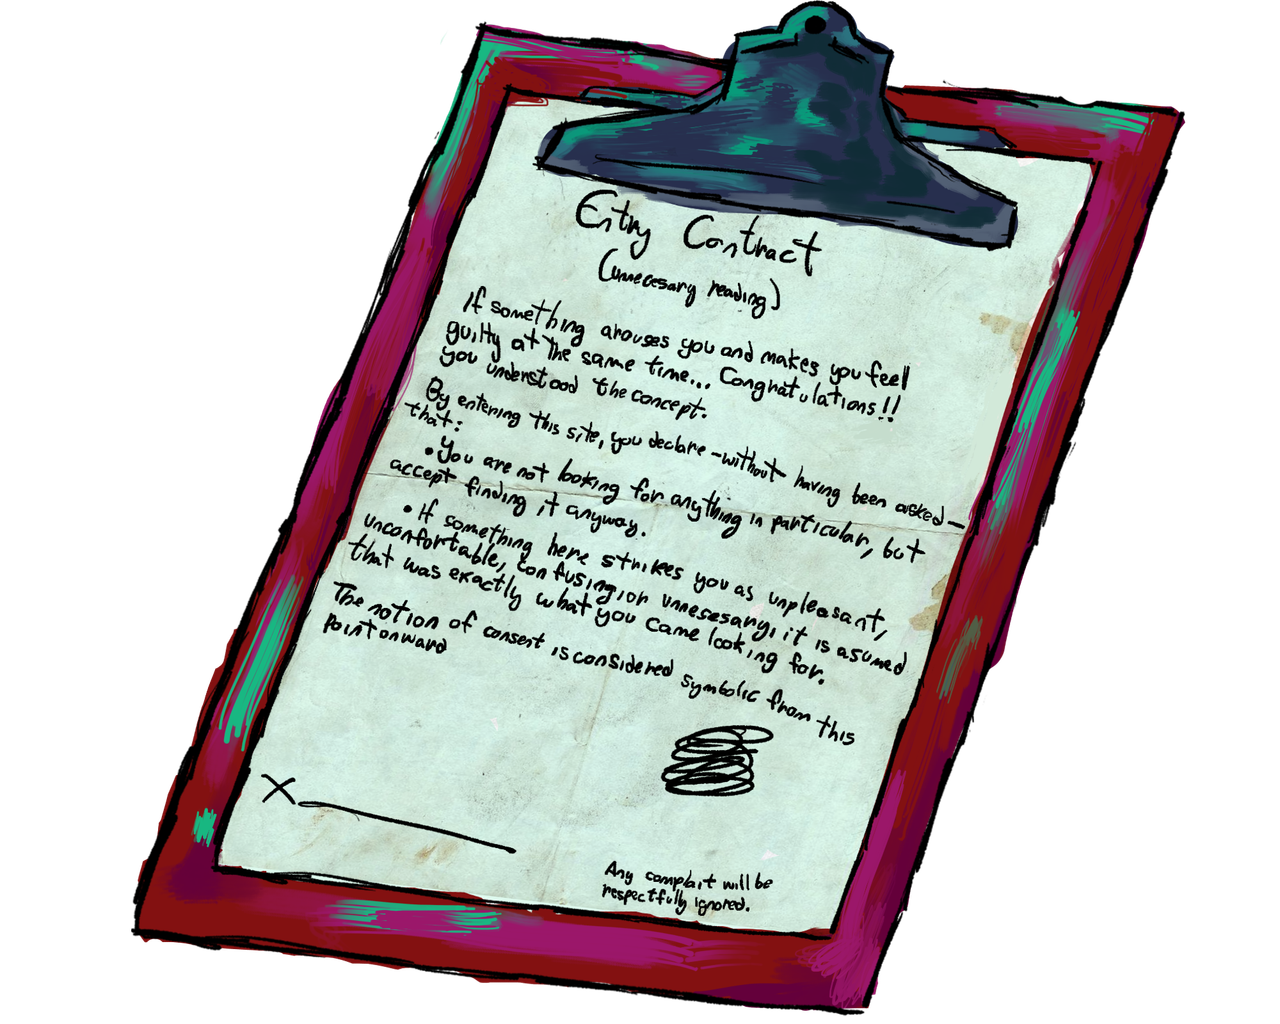 Entry Contract
(unnecesary reading)
If something arouses you and makes you feel
guilty at the same time... Congratulations!!
you understood the concept.
By entering this site, you declare -without having been asked-
that:
• You are not looking for anything in particular, but
accept finding it anyway.
• If something here strikes you as unpleasant,
unconfortable, confusing, or unnecesary, it is asumed
that was exactly what you came looking for.
The notion of consent is considered symbolic from this
point onward
X
Any complait will be
respectfully ignored.